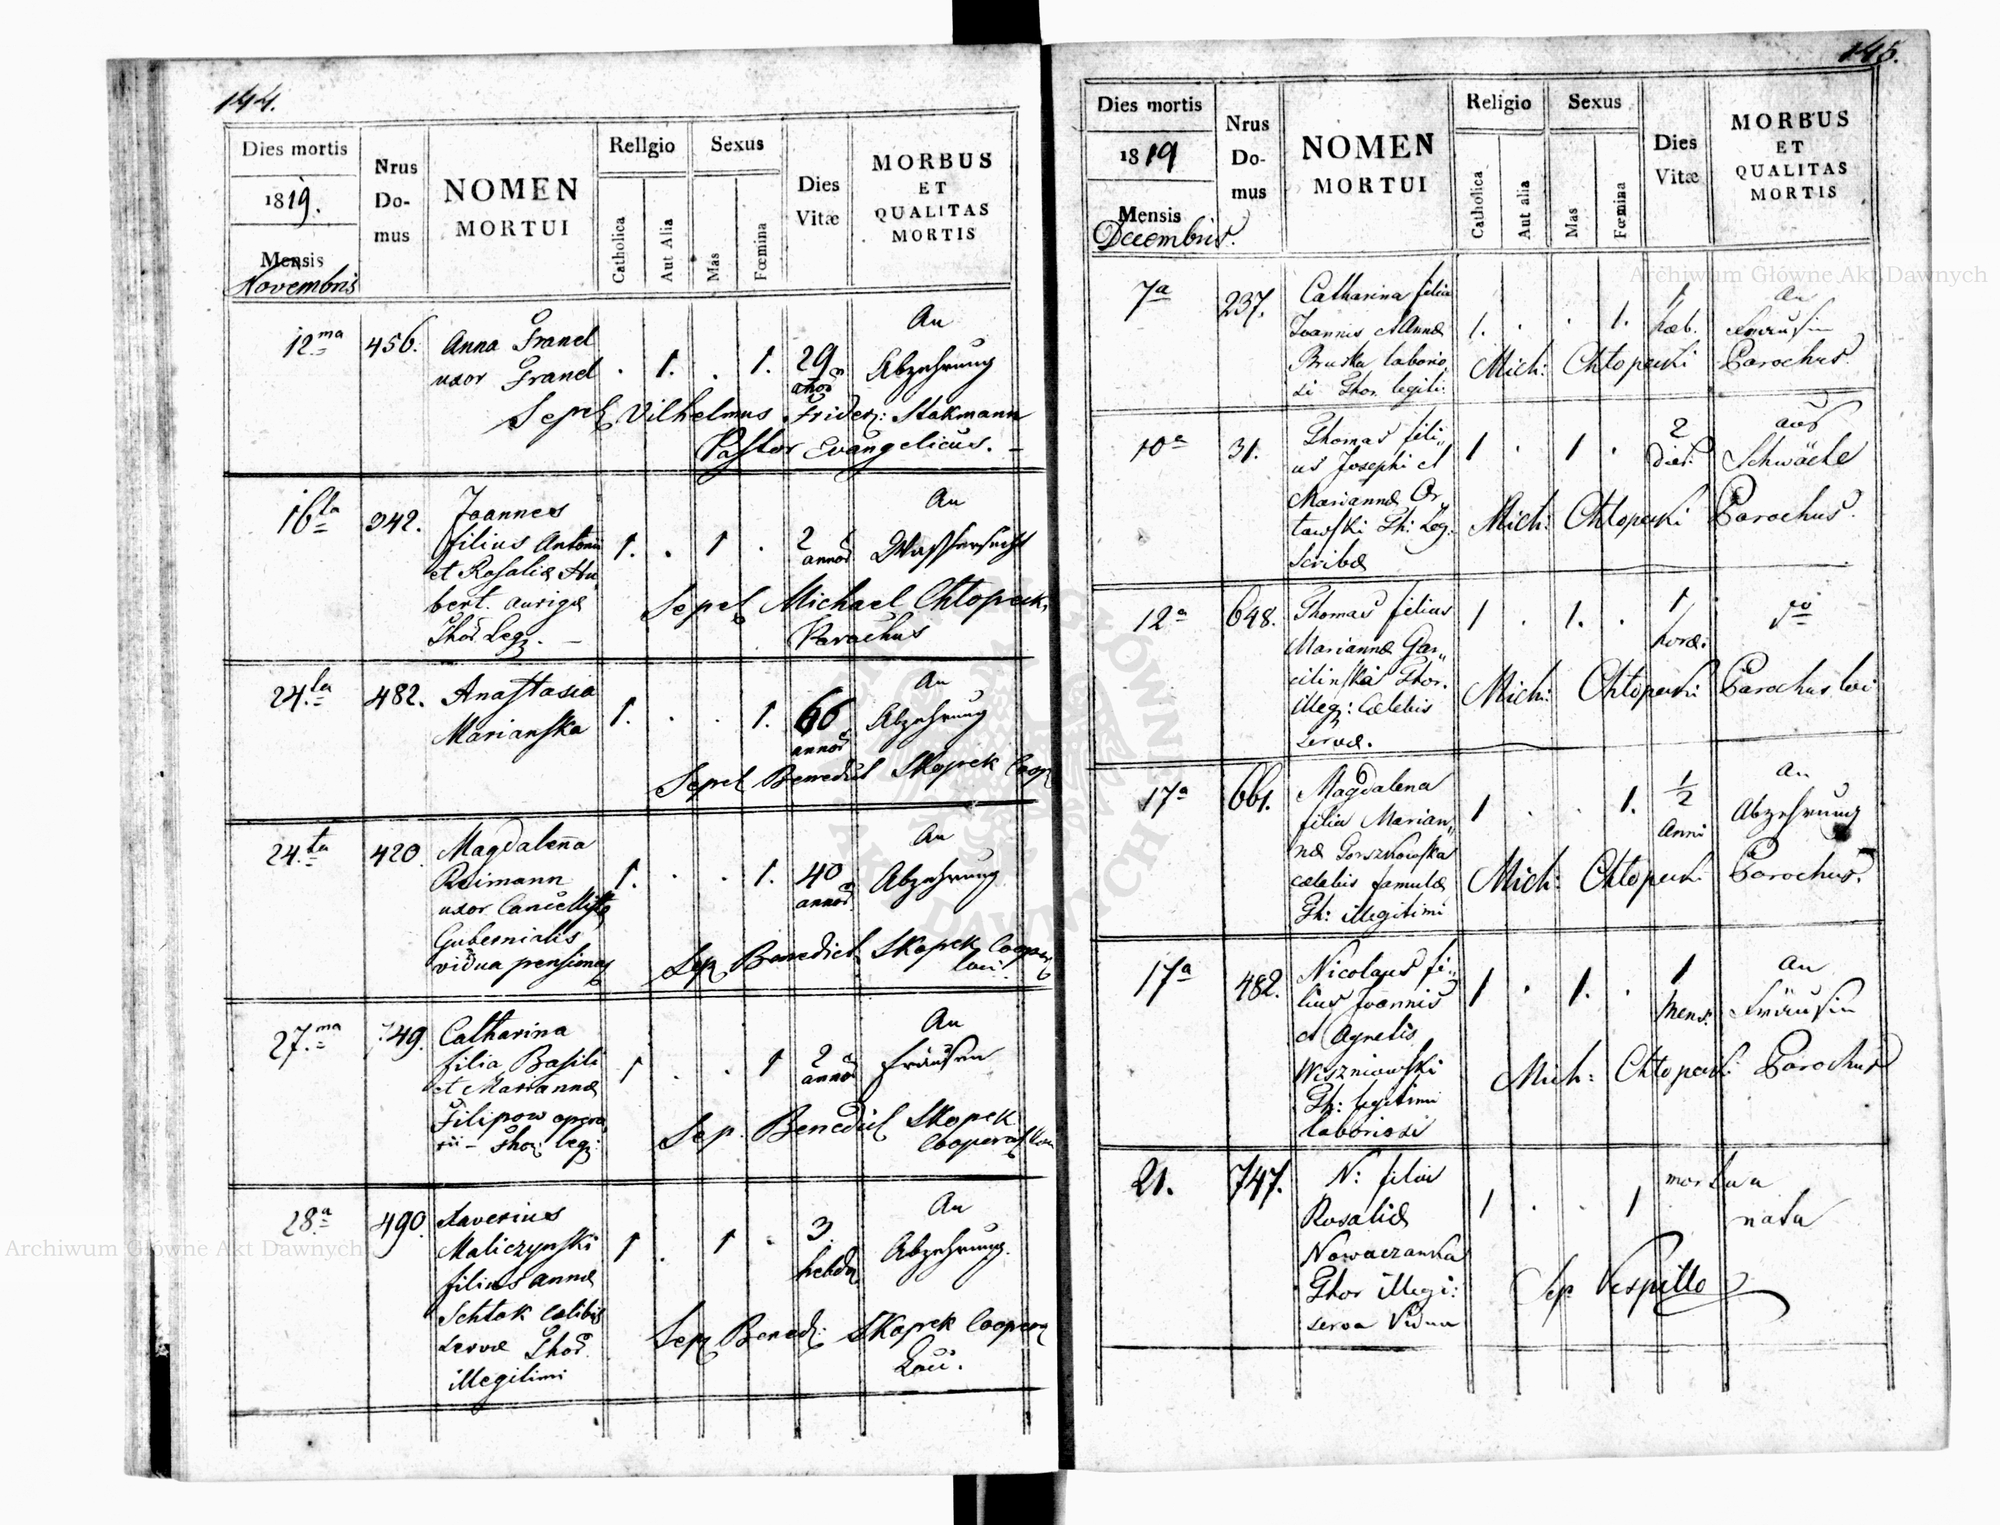 144.
Dies mortis
1819.
Mensis
Novembris
Nrus
Do-
mus
NOMEN
MORTUI
Rellgio
Catholica
Aut Alia
Sexus
Mas
Fœmina
Dies
Vitæ
MORBUS
ET
QUALITAS
MORTIS
12ma 456. Anna Franel
uxor Franel . 1. . 1. 29
An
Abzehrung
Sepel Vilhelmus Frider: Stakmann
Pastor Evangelicus. –
16ta 342. Joannes
filius Antonii
et Rosaliæ Hu
bert. aurigæ
Thor Leg. –
1. . 1 . 2
annor
An
Wassersucht
Sepel Michael Chlopecki
Parochus
24ta 482. Anastasia
Marianska
1. . . 1. 66
annor
An
Abzehrung
Sepel Benedict Skopek Coop
24ta 420. Magdalena
Reimann
uxor Cancellistæ
Gubernialis
vidua pensionas
1. . . 1. 40
annor
An
Abzehrung
Sep Benedict Skopek Cooper
loci.
27ma 749. Catharina
filia Basili
et Mariannæ
Filipow opera
rii – Thor: leg:
1 . . 1 2
annor
An
Fräusen
Sep. Benedict Skopek
Cooperat
28a 490. Xaverius
Maliczynski
filius annæ
Schlak celibis
servæ Thor
illegitimi
1 . 1 . 3.
hebdo
An
Abzehrung.
Sep Bened: Skopek Cooper
Loci.
145.
Dies mortis
1819
Mensis
Decembris.
Nrus
Do-
mus
NOMEN
MORTUI
Religio
Catholica
Aut alia
Sexus
Mas
Fœmina
Dies
Vitæ
MORBUS
ET
QUALITAS
MORTIS
7a 237. Catharina filia
Joannis et Annæ
Bruska laborio
si Thor legiti:
1. . . 1. 1
heb.
An
Fräusin
Mich: Chlopecki Parochus.
10a 31. Thomas fili„
us Josephi et
Mariannæ Or„
towski Th: Leg:
scribæ
1 . 1 . 2
dier.
aus
Schwäche
Mich: Chlopecki Parochus.
12a 648. Thomas filius
Mariannæ Gar„
cilinska Thor.
illeg: Cælebis
servæ.
1 . 1. . 1
horæ. do
Mich: Chlopecki Parochus loci
17a 661. Magdalena
filia Marian„
næ Gorszkowska
cælebis famulæ
Th: illegitimi
1 . . 1. 1/2
Anni
An
Abzehrung
Mich: Chlopecki Parochus.
17a 482. Nicolaus fi„
lius Joannis
et Agnetis
Wiszniowski
Th: legitimi
laboriosi
1 . 1. . 1
Mens.
An
Fräusin
Mich: Chlopecki Parochus
21. 747. N: filia
Rosaliæ
Nowaczanka
Thor illegi:
serva Vidua
1 . . 1 mortua
nata
Sep: Vespillo
Archiwum Główne Akt Dawnych
Archiwum Główne Akt Dawnych